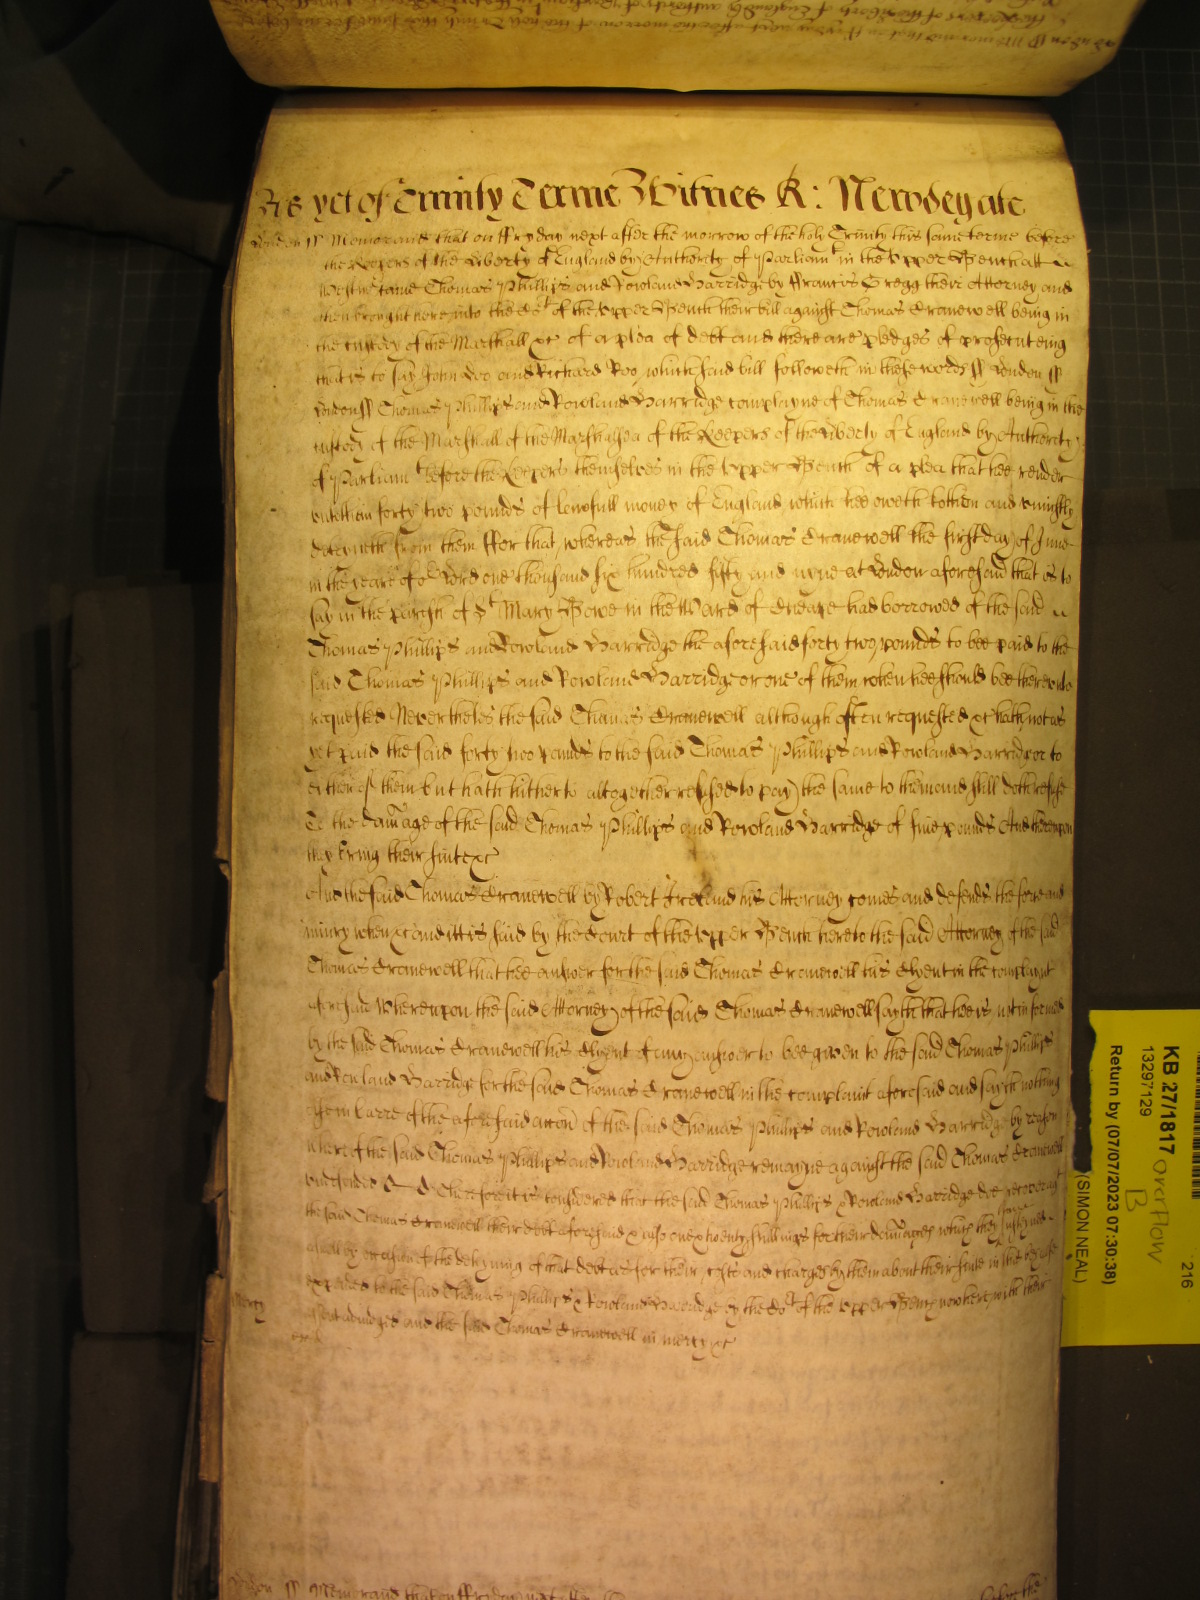 As yet of Trinity Terme Witnes R: Newdegate
London ss Memorand that on ffryday next after the morrow of the holy Trinity this same terme before
the Keepers of the Liberty of England by Authority of Parliamt in the Upper Bench att
Westmr came Thomas Phillips and Rowland Harridge by ffrancis Gregg their Attorney and
then brought here into the Cort of the Upper Bench their bill against Thomas Cranewell being in
the custody of the Marshall &c of a plea of debt and there are pledges of prosecuteing
that is to say John Doo and Richard Roo which said bill followeth in these words ss London ss
London ss Thomas Phillips and Rowland Harridge complayne of Thomas Cranewell being in the
custody of the Marshall of the Marshalsea of the Keepers of the Liberty of England by Authority
of Parliamt before the Keepers themselves in the Upper Bench of a plea that hee render
unto them forty two pounds of lawfull money of England which hee oweth to them and uniustly
deteyneth from them ffor that whereas the said Thomas Cranewell the first day of June
in the yeare of or Lord one thousand six hundred fifty and nyne at London aforesaid that is to
say in the parish of St Mary Bowe in the Ward of Cheape had borrowed of the said
Thomas Phillips and Rowland Harridge the aforesaid forty two pounds to bee paid to the
said Thomas Phillips and Rowland Harridge or one of them when hee should bee thereunto
requested Nevertheles the said Thomas Cranewell although often requested &c hath not as
yet paid the said forty two pounds to the said Thomas Phillips and Rowland Harridge or to
either of them but hath hitherto altogether refused to pay the same to them and still doth refuse
To the damage of the said Thomas Phillips and Rowland Harridge of five pounds And thereupon
they bring their suite &c
And the said Thomas Cranewell by Robert Ireland his Attorney comes and defends the force and
iniury when &c and itt is said by the Court of the Upper Bench here to the said Attorney of the said
Thomas Cranewell that hee answer for the said Thomas Cranewell his Clyent in the complaynt
aforesaid Whereupon the said Attorney of the said Thomas Cranewell sayth that hee is not informed
by the said Thomas Cranewell his Clyent of any answer to bee given to the said Thomas Phillips
and Rowland Harridge for the said Thomas Cranewell in the complaint aforesaid and sayth nothing
in barre of the aforesaid accon of the said Thomas Phillips and Rowland Harridge by reason
whereof the said Thomas Phillips and Rowland Harridge remayne against the said Thomas Cranewell
undefended Therefore it is considered that the said Thomas Phillips & Rowland Harridge doe recover agt
the said Thomas Cranewell their debt aforesaid & also one & twenty shillings for their damages which they have susteyned
aswell by occasion of the deteyning of that debt as for their costs and charges by them about their suite in this behalfe
expended to the said Thomas Phillips & Rowland Harridge by the Cort of the Upper Bench now here with their
assent adiudged and the said Thomas Cranewell in mercy &c
Mercy
London ss Memorand that on ffryday next after the before the
KB 27/1817 overflow
B
13297129
Return by (07/07/2023 07:30:38)
(SIMON NEAL)
216